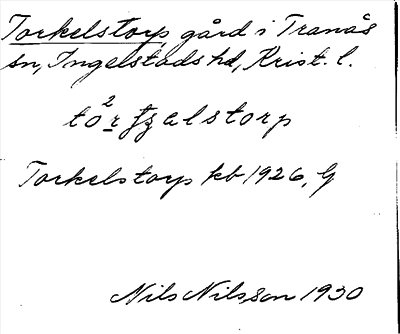 Torkelstorp gård i Tranås
sn, Ingelstads hd, Krist. l.
Torkelstorp kb 1926, G
Nils Nilsson 1930